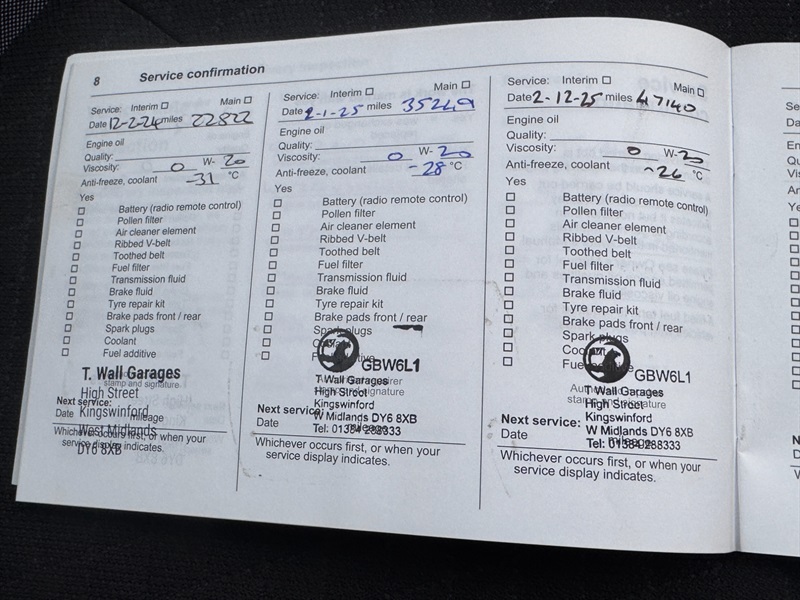 8 Service confirmation
Service: Interim Main
Date 12-2-24 miles 22822
Engine oil
Quality:
Viscosity: 0 W- 20
Anti-freeze, coolant -31 °C
Yes
Battery (radio remote control)
Pollen filter
Air cleaner element
Ribbed V-belt
Toothed belt
Fuel filter
Transmission fluid
Brake fluid
Tyre repair kit
Brake pads front / rear
Spark plugs
Coolant
Fuel additive
T. Wall Garages
stamp and signature
High Street
Next service:
Kingswinford
Date mileage
West Midlands
Whichever occurs first, or when your
service display indicates.
DY6 8XB
Service: Interim Main
Date 2-1-25 miles 35249
Engine oil
Quality:
Viscosity: 0 W- 20
Anti-freeze, coolant -28 °C
Yes
Battery (radio remote control)
Pollen filter
Air cleaner element
Ribbed V-belt
Toothed belt
Fuel filter
Transmission fluid
Brake fluid
Tyre repair kit
Brake pads front / rear
Spark plugs
GBW6L1
T Wall Garages
High Street
Kingswinford
Next service:
W Midlands DY6 8XB
Date
Tel: 01384 288333
Whichever occurs first, or when your
service display indicates.
Service: Interim Main
Date 2-12-25 miles 47140
Engine oil
Quality:
Viscosity: 0 W- 20
Anti-freeze, coolant -26 °C
Yes
Battery (radio remote control)
Pollen filter
Air cleaner element
Ribbed V-belt
Toothed belt
Fuel filter
Transmission fluid
Brake fluid
Tyre repair kit
Brake pads front / rear
Spark plugs
GBW6L1
T Wall Garages
stamp and signature
High Street
Kingswinford
Next service:
W Midlands DY6 8XB
Date mileage
Tel: 01384 288333
Whichever occurs first, or when your
service display indicates.